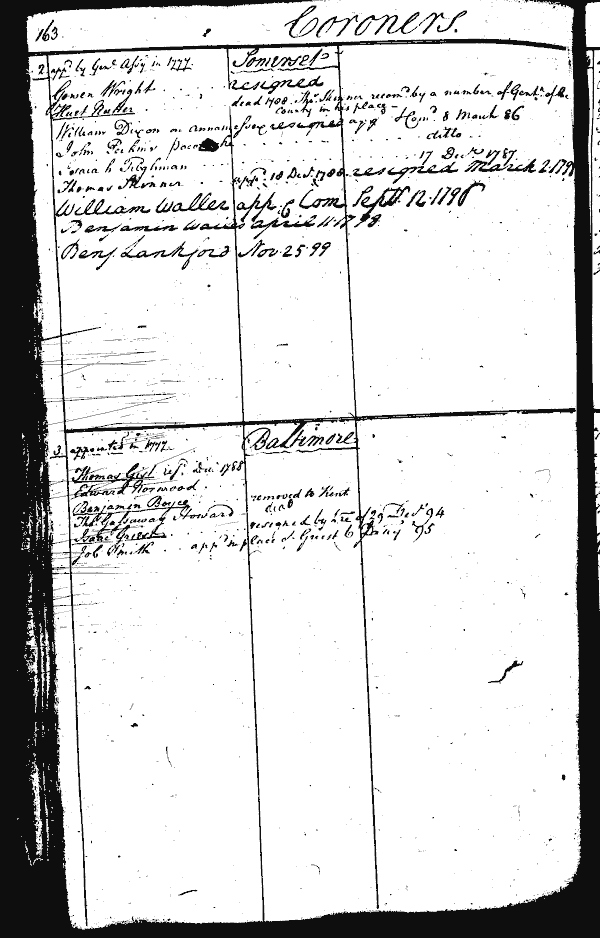 163
Coroners.
2 appd by Genl Assy in 1777
Somerset
Gowen Wright resigned
Huet Nutter dead 1788. Thos Skinner recomd by a number of Gentn of the
County in his place
William Dixon on annamessex resigned appd Comn 8 March 86
John Perkins ditto
Esaiah Tilghman 17 Decr 1787
Thomas Skinner appd 10 Decr 1788 resigned March 2. 179
William Waller app Com Septr 12. 1798
Benjamin april 11. 1798
Benj. Lankford Nov. 25. 99
3 appointed in 1777
Baltimore
Thomas Gist resd Decr 1788
Edward Norwood
Benjamin Boyce removed to Kent
Ths Gassaway Howard dead
Isaac Griest resigned by lre of 29 Decr 94
Job Smith appd in place of Griest 6 Jany 95